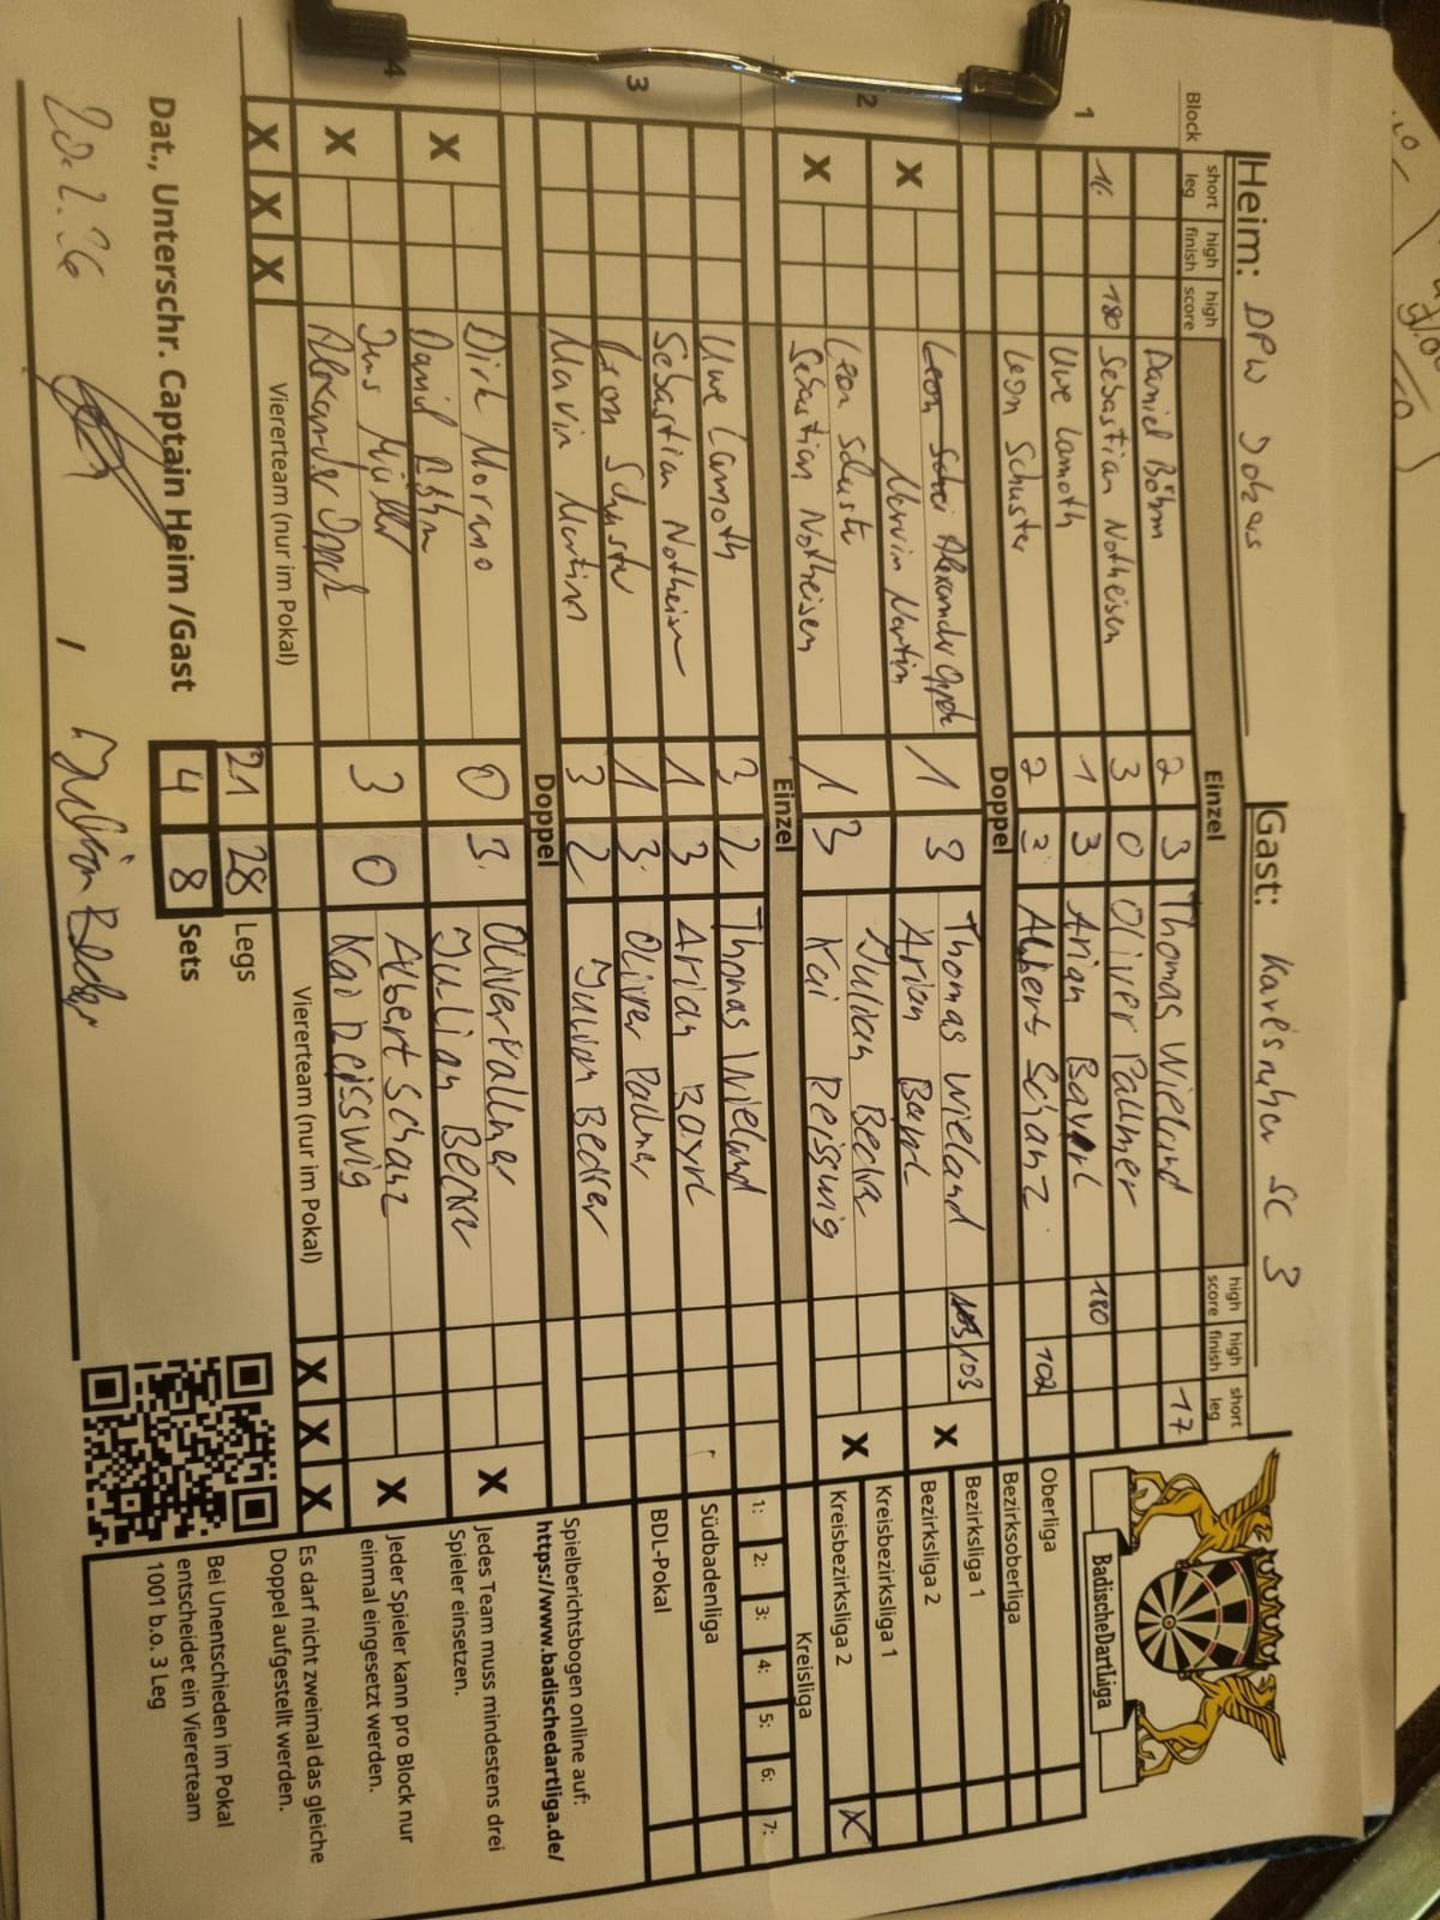 Heim: DPW Jokers Gast: Karlsruher SC 3
Block short leg high finish high score Einzel high score high finish short leg
1
Daniel Böhm 2 3 Thomas Wieland 17
16 180 Sebastian Notheisen 3 0 Oliver Pallmer
Uwe Lamoth 1 3 Arian Bayrl 180
Leon Schuster 2 3 Albert Schanz 102
Doppel
2
X Alexander 1 3 Thomas Wieland 103 X
Marvin Martin Arian Bayrl
X Leon Schuste 1 3 Julian Becker X
Sebastian Notheisen Kai Reisswig
Einzel
3
Uwe Lamoth 3 2 Thomas Wieland
Sebastian Notheisen 1 3 Arian Bayrl
Leon Schuster 1 3 Oliver Pallmer
Marvin Martin 3 2 Julian Becker
Doppel
4
X Dirk Morano 0 3 Oliver Pallmer X
Daniel Böhm Julian Becker
X Jens Müller 3 0 Albert Schanz X
Alexander Kai Reisswig
X X X Viererteam (nur im Pokal) Viererteam (nur im Pokal) X X X
21 28 Legs
Dat., Unterschr. Captain Heim /Gast 4 8 Sets
20.2.26 / Julian Becker
BadischeDartLiga
Oberliga
Bezirksoberliga
Bezirksliga 1
Bezirksliga 2
Kreisbezirksliga 1
Kreisbezirksliga 2 X
Kreisliga
1: 2: 3: 4: 5: 6: 7:
Südbadenliga
BDL-Pokal
Spielberichtsbogen online auf:
https://www.badischedartliga.de/
Jedes Team muss mindestens drei
Spieler einsetzen.
Jeder Spieler kann pro Block nur
einmal eingesetzt werden.
Es darf nicht zweimal das gleiche
Doppel aufgestellt werden.
Bei Unentschieden im Pokal
entscheidet ein Viererteam
1001 b.o. 3 Leg